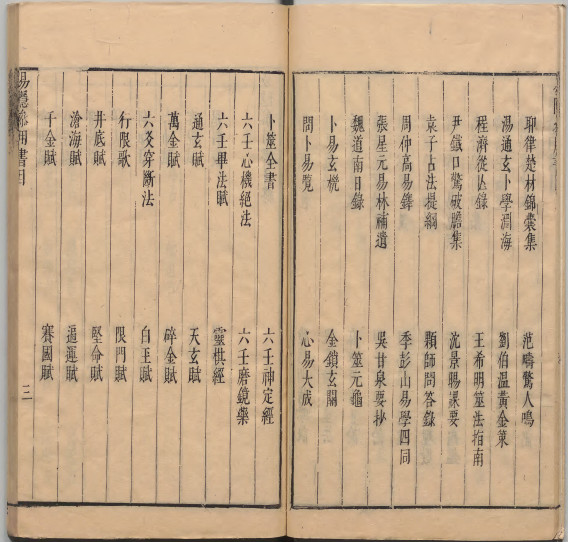 耶律楚材錦囊集 范疇驚人鳴
湯通玄卜學淵海 劉伯溫黃金策
程濟從亾錄 王希明筮法指南
尹鐵口驚破膽集 沈景暘課要
袁子占法提綱 顆師問答錄
周仲高易鐸 季彭山易學四同
張星元易林補遺 吳甘泉要抄
魏道南目錄 卜筮元龜
卜易玄機 金鎖玄關
問卜易覽 心易大成
卜筮全書 六壬神定經
六壬心機絕法 六壬磨鏡藥
六壬畢法賦 靈棋經
通玄賦 天玄賦
萬金賦 碎金賦
六爻穿斷法 白玉賦
行限歌 限門賦
井底賦 堅命賦
滄海賦 逼運賦
千金賦 賽國賦
易 用書目 三